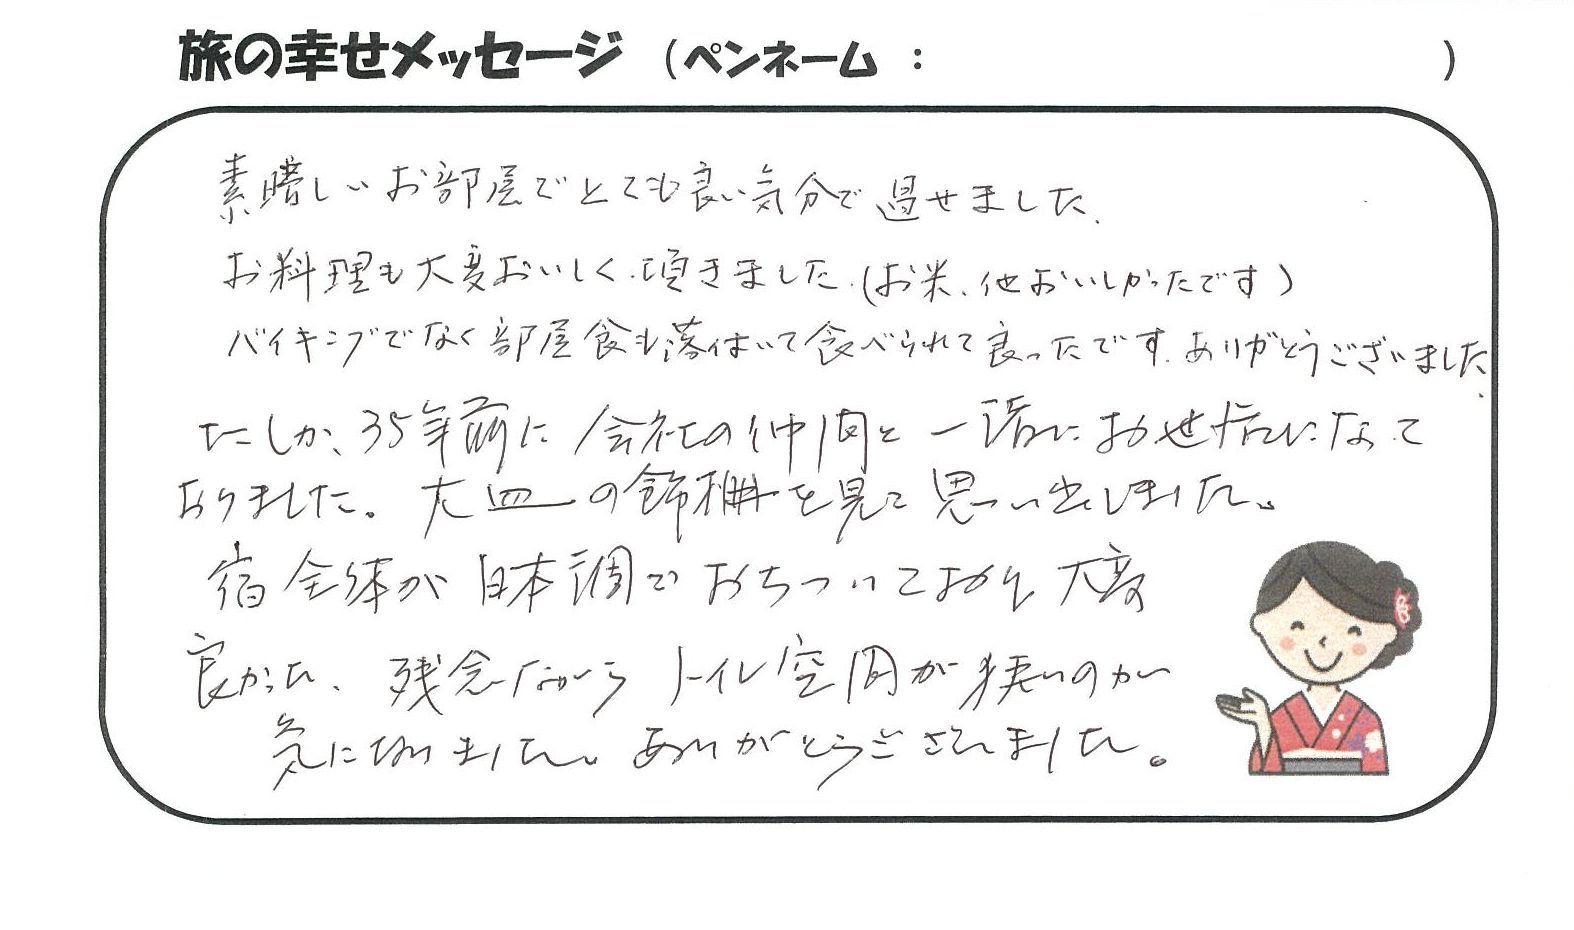 旅の幸せメッセージ（ペンネーム：　　　）
素晴しいお部屋でとても良い気分で過せました.
お料理も大変おいしく頂きました.(お米、他おいしかったです)
バイキングでなく部屋食も落付いて食べられて良ったです.ありがとうございました.
たしか、35年前に会社の仲間と一緒にお世話になって
おりました。大皿の飾棚を見て思い出しました。
宿全体が日本調でおちついており大変
良かった、残念ながらトイレ空間が狭いのが
気になりました。ありがとうございました。